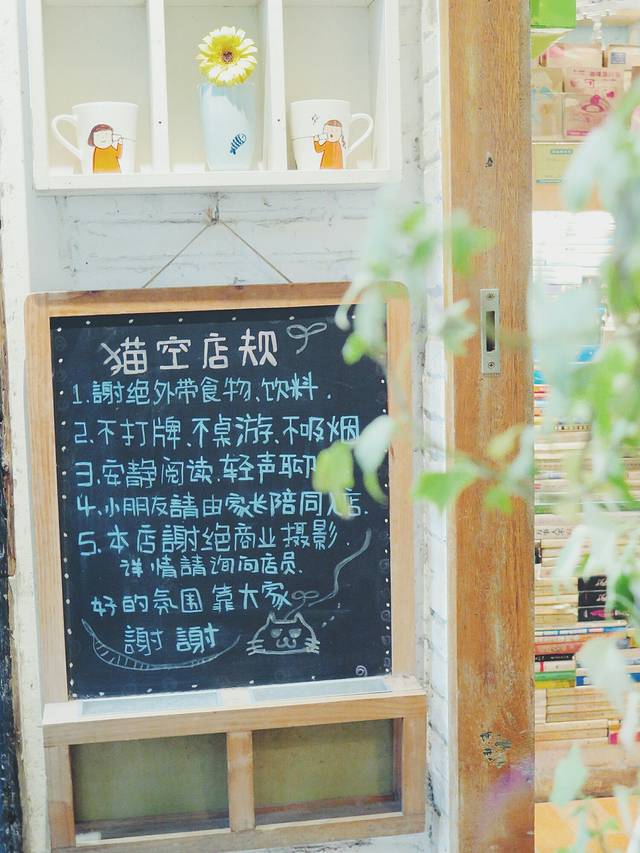 猫空店规
1.謝绝外带食物、饮料.
2.不打牌.不桌游.不吸烟
3.安静阅读.轻声耴
4.小朋友請由家长陪同入店.
5.本店謝绝商业摄影.
详情請询问店员.
好的氛围靠大家
謝謝